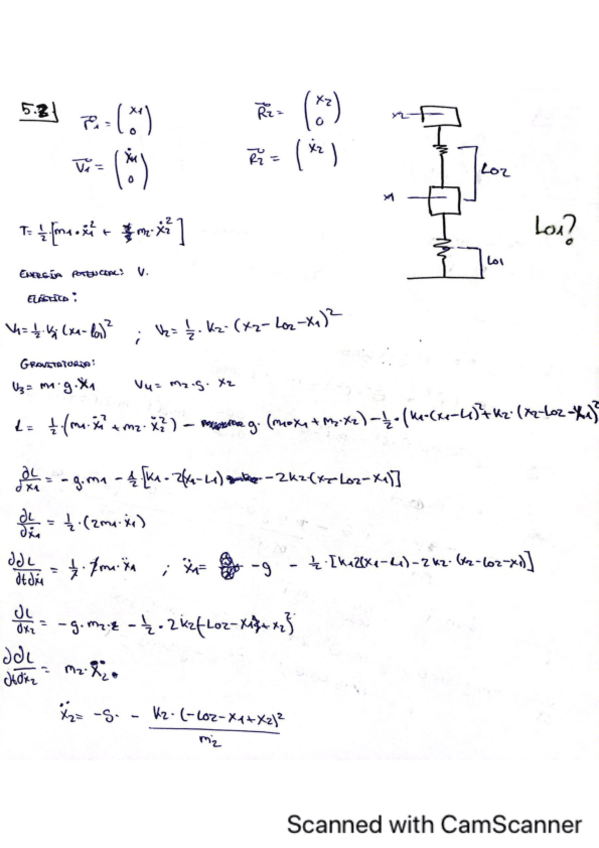 5.2)
r⃗₁ = (x₁ 0)
R⃗₂ = (x₂ 0)
V⃗₁ = (ẋ₁ 0)
R⃗₂ = (ẋ₂ )
x₂
L02
x1
L01
L01?
T = ½[m₁·ẋ₁² + m₂·ẋ₂²]
ENERGÍA POTENCIAL: V.
ELÁSTICA:
V₁ = ½·k₁(x₁-l01)² ; V₂ = ½·k₂·(x₂-L02-x₁)²
GRAVITATORIA:
V₃ = m₁·g·x₁ V₄ = m₂·g·x₂
L = ½·(m₁·ẋ₁² + m₂·ẋ₂²) - g·(m₁·x₁ + m₂·x₂) - ½·(k₁·(x₁-L1)² + k₂·(x₂-L02-x₁)²
∂L/∂x₁ = -g·m₁ - ½[k₁·2(x₁-L1) - 2k₂(x₂-L02-x₁)]
∂L/∂ẋ₁ = ½·(2m₁·ẋ₁)
∂∂L/∂t∂ẋ₁ = ½·2m₁·ẍ₁ ; ẍ₁ = -g - ½·[k₁2(x₁-L1) - 2k₂·(x₂-L02-x₁)]
∂L/∂x₂ = -g·m₂ - ½·2k₂(-L02-x₁+x₂)²
∂∂L/∂t∂ẋ₂ = m₂·ẍ₂.
ẍ₂ = -g· - k₂·(-L02-x₁+x₂)²/m₂
Scanned with CamScanner